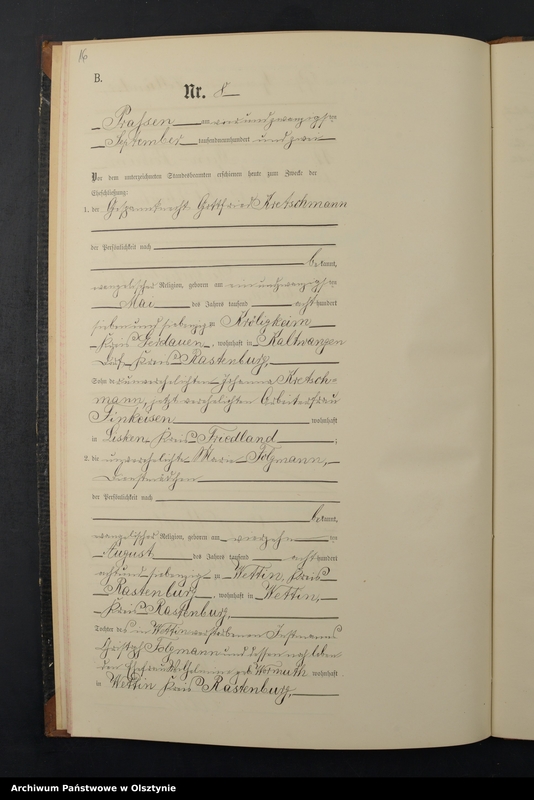 16
B.
Nr. 8
Prassen am vierundzwanzigsten
September tausendneunhundert und zwei
Vor dem unterzeichneten Standesbeamten erschienen heute zum Zwecke der
Eheschließung:
1. der Gespannknecht Gottfried Kretschmann
der Persönlichkeit nach
bekannt,
evangelischer Religion, geboren am einundzwanzigsten
Mai des Jahres tausend achthundert
siebenundsiebenzig zu Kröligkeim
Kreis Gerdauen, wohnhaft in Kaltwangen
Dorf Kreis Rastenburg,
Sohn der unverehelichten Johanna Kretsch-
mann, jetzt verehelichten Arbeiterfrau
Finkeisen wohnhaft
in Lisken Kreis Friedland ;
2. die unverehelichte Marie Tolgmann,
Dienstmädchen
der Persönlichkeit nach
bekannt,
evangelischer Religion, geboren am vierzehnten
August des Jahres tausend achthundert
achtundsiebenzig zu Wettin, Kreis
Rastenburg, wohnhaft in Wettin,
Kreis Rastenburg,
Tochter des in Wettin verstorbenen Instmanns
Tolgmann und dessen noch leben
den Ehefrau Wilhelmine geb Wermuth wohnhaft
in Wettin Kreis Rastenburg,
Archiwum Państwowe w Olsztynie